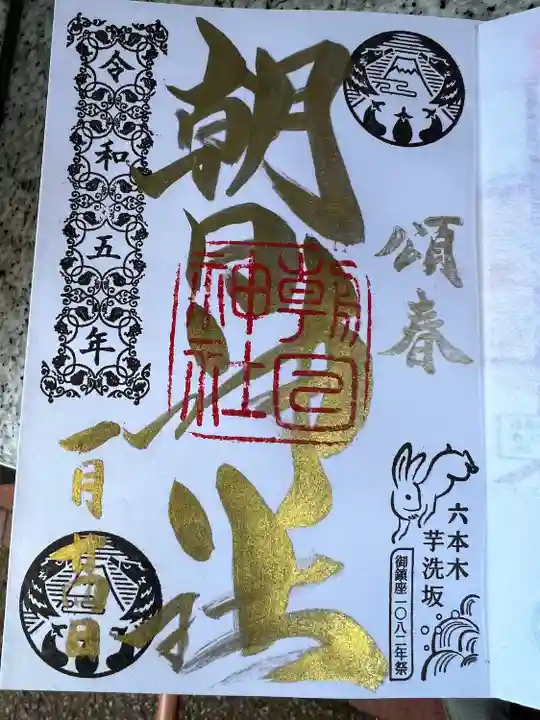 頌春
六本木
芋洗坂
御鎮座一〇八二年祭
朝日神社
朝日
神社
令和五年
一月廿四日